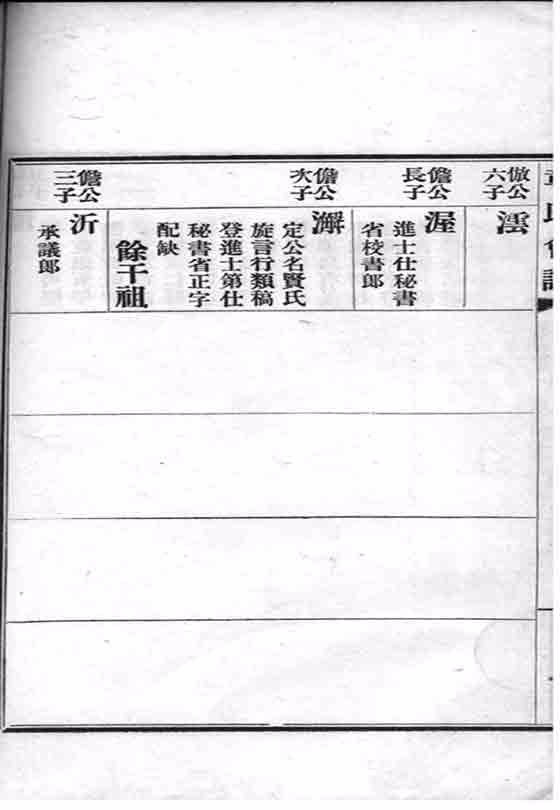 倣公
六子
澐
儋公
長子
渥
進士仕秘書
省校書郎
儋公
次子
澥
定公名賢氏
旌言行類稿
登進士第仕
秘書省正字
配缺
餘干祖
儋公
三子
沂
承議郎